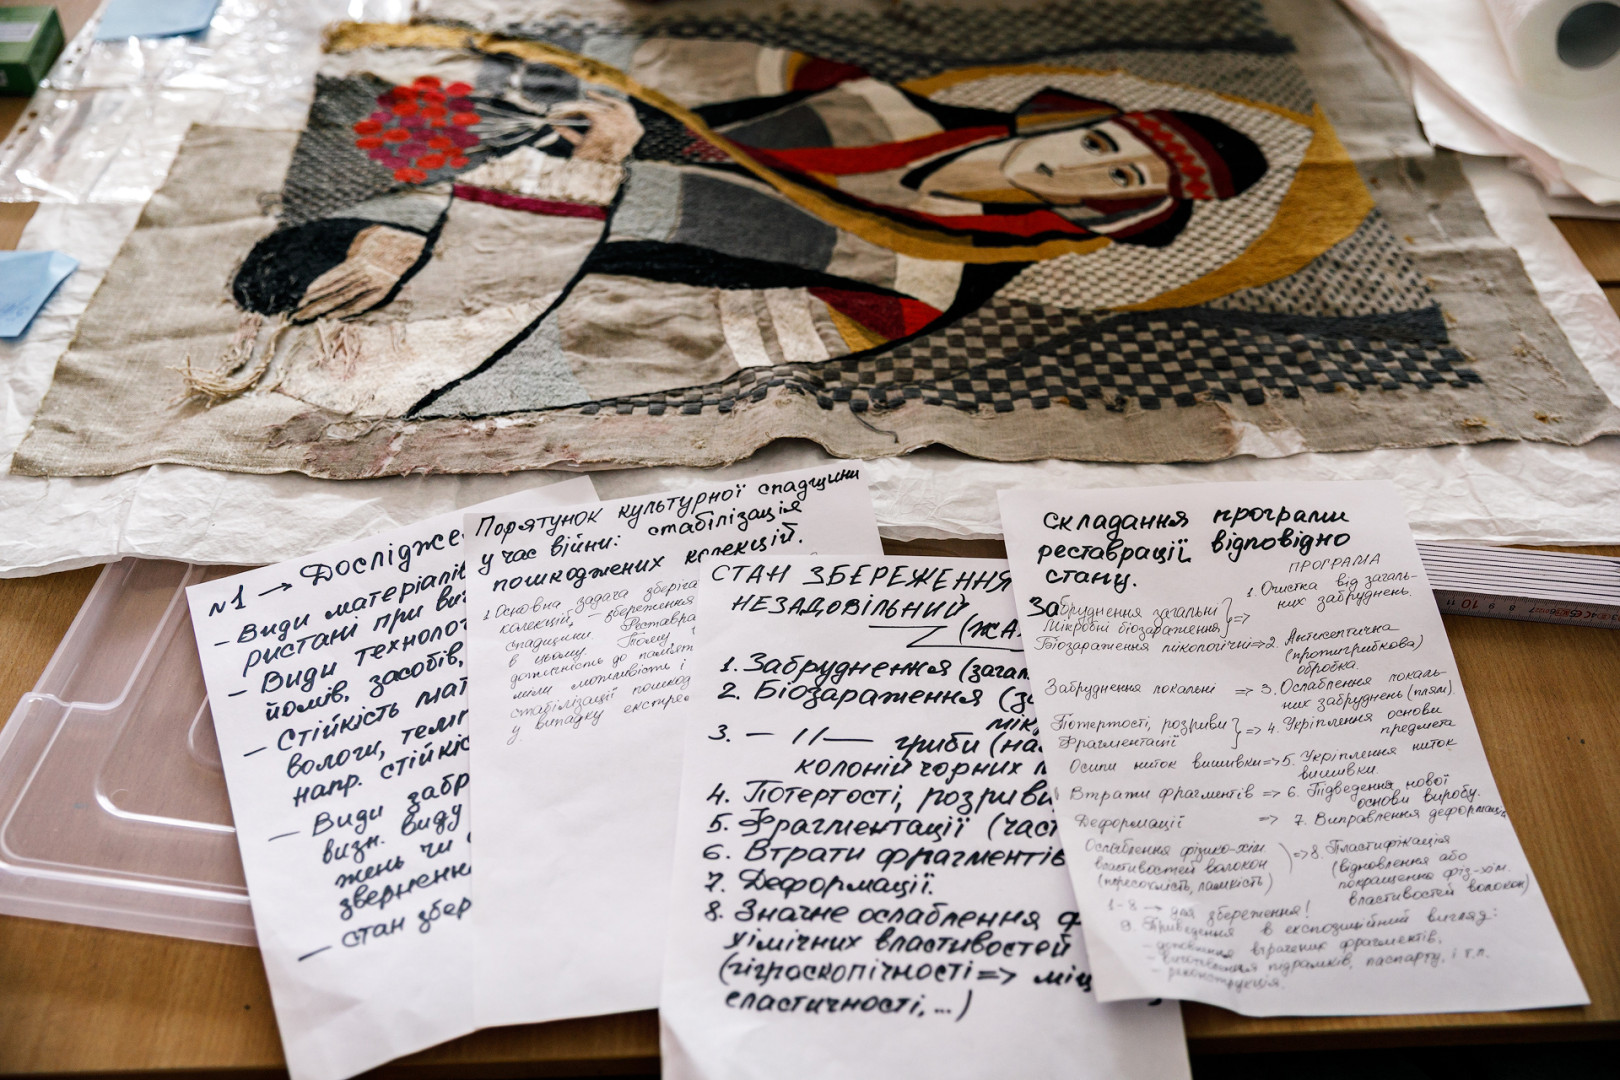 №1 → Дослідже
– Види матеріалі
ристані при ви
– Види технолог
йомів, засобів,
– Стійкість мат
вологи, темп
напр. стійкіс
– Види забр
визн. виду
жень чи
зверненн
– стан збер
Порятунок культурної спадщини
у час війни: стабілізація
пошкоджених колекцій.
1. Основна задача зберіга
колекцій, – збереження
спадщини. Реставра
в цьому. Тому
дотичність до пам'ят
мили можливість і
стабілізації пошкод
у випадку екстре
СТАН ЗБЕРЕЖЕННЯ
НЕЗАДОВІЛЬНИЙ
(жа
1. Забруднення (загал
2. Біозараження (з
мік
3. – //– гриби (на
колоній чорних п
4. Потертості, розриви
5. Фрагментації (част
6. Втрати фрагментів
7. Деформації.
8. Значне ослаблення ф
хімічних властивостей
(гігроскопічності => міц
еластичності, ...)
складання програми
реставрації відповідно
стану.
ПРОГРАМА
Забруднення загальні
Мікробні біозараження } => 1. Очистка від загаль-
них забруднень.
Біозараження мікологічні => 2. Антисептична
(протигрибкова)
обробка.
Забруднення локальні => 3. Ослаблення локаль-
них забруднень (плям).
Потертості, розриви
Фрагментації } => 4. Укріплення основи
предмета
Осипи ниток вишивки => 5. Укріплення ниток
вишивки.
Втрати фрагментів => 6. Підведення нової
основи виробу.
Деформації => 7. Виправлення деформацій
Ослаблення фізико-хім
властивостей волокон
(пересохлість, ламкість) => 8. Пластифікація
(відновлення або
покращення фіз-хім.
властивостей волокон)
1-8 → для збереження!
9. Приведення в експозиційний вигляд:
– доповнення втрачених фрагментів,
– виготовлення підрамків, паспарту, і т.п.
– реконструкція.
10